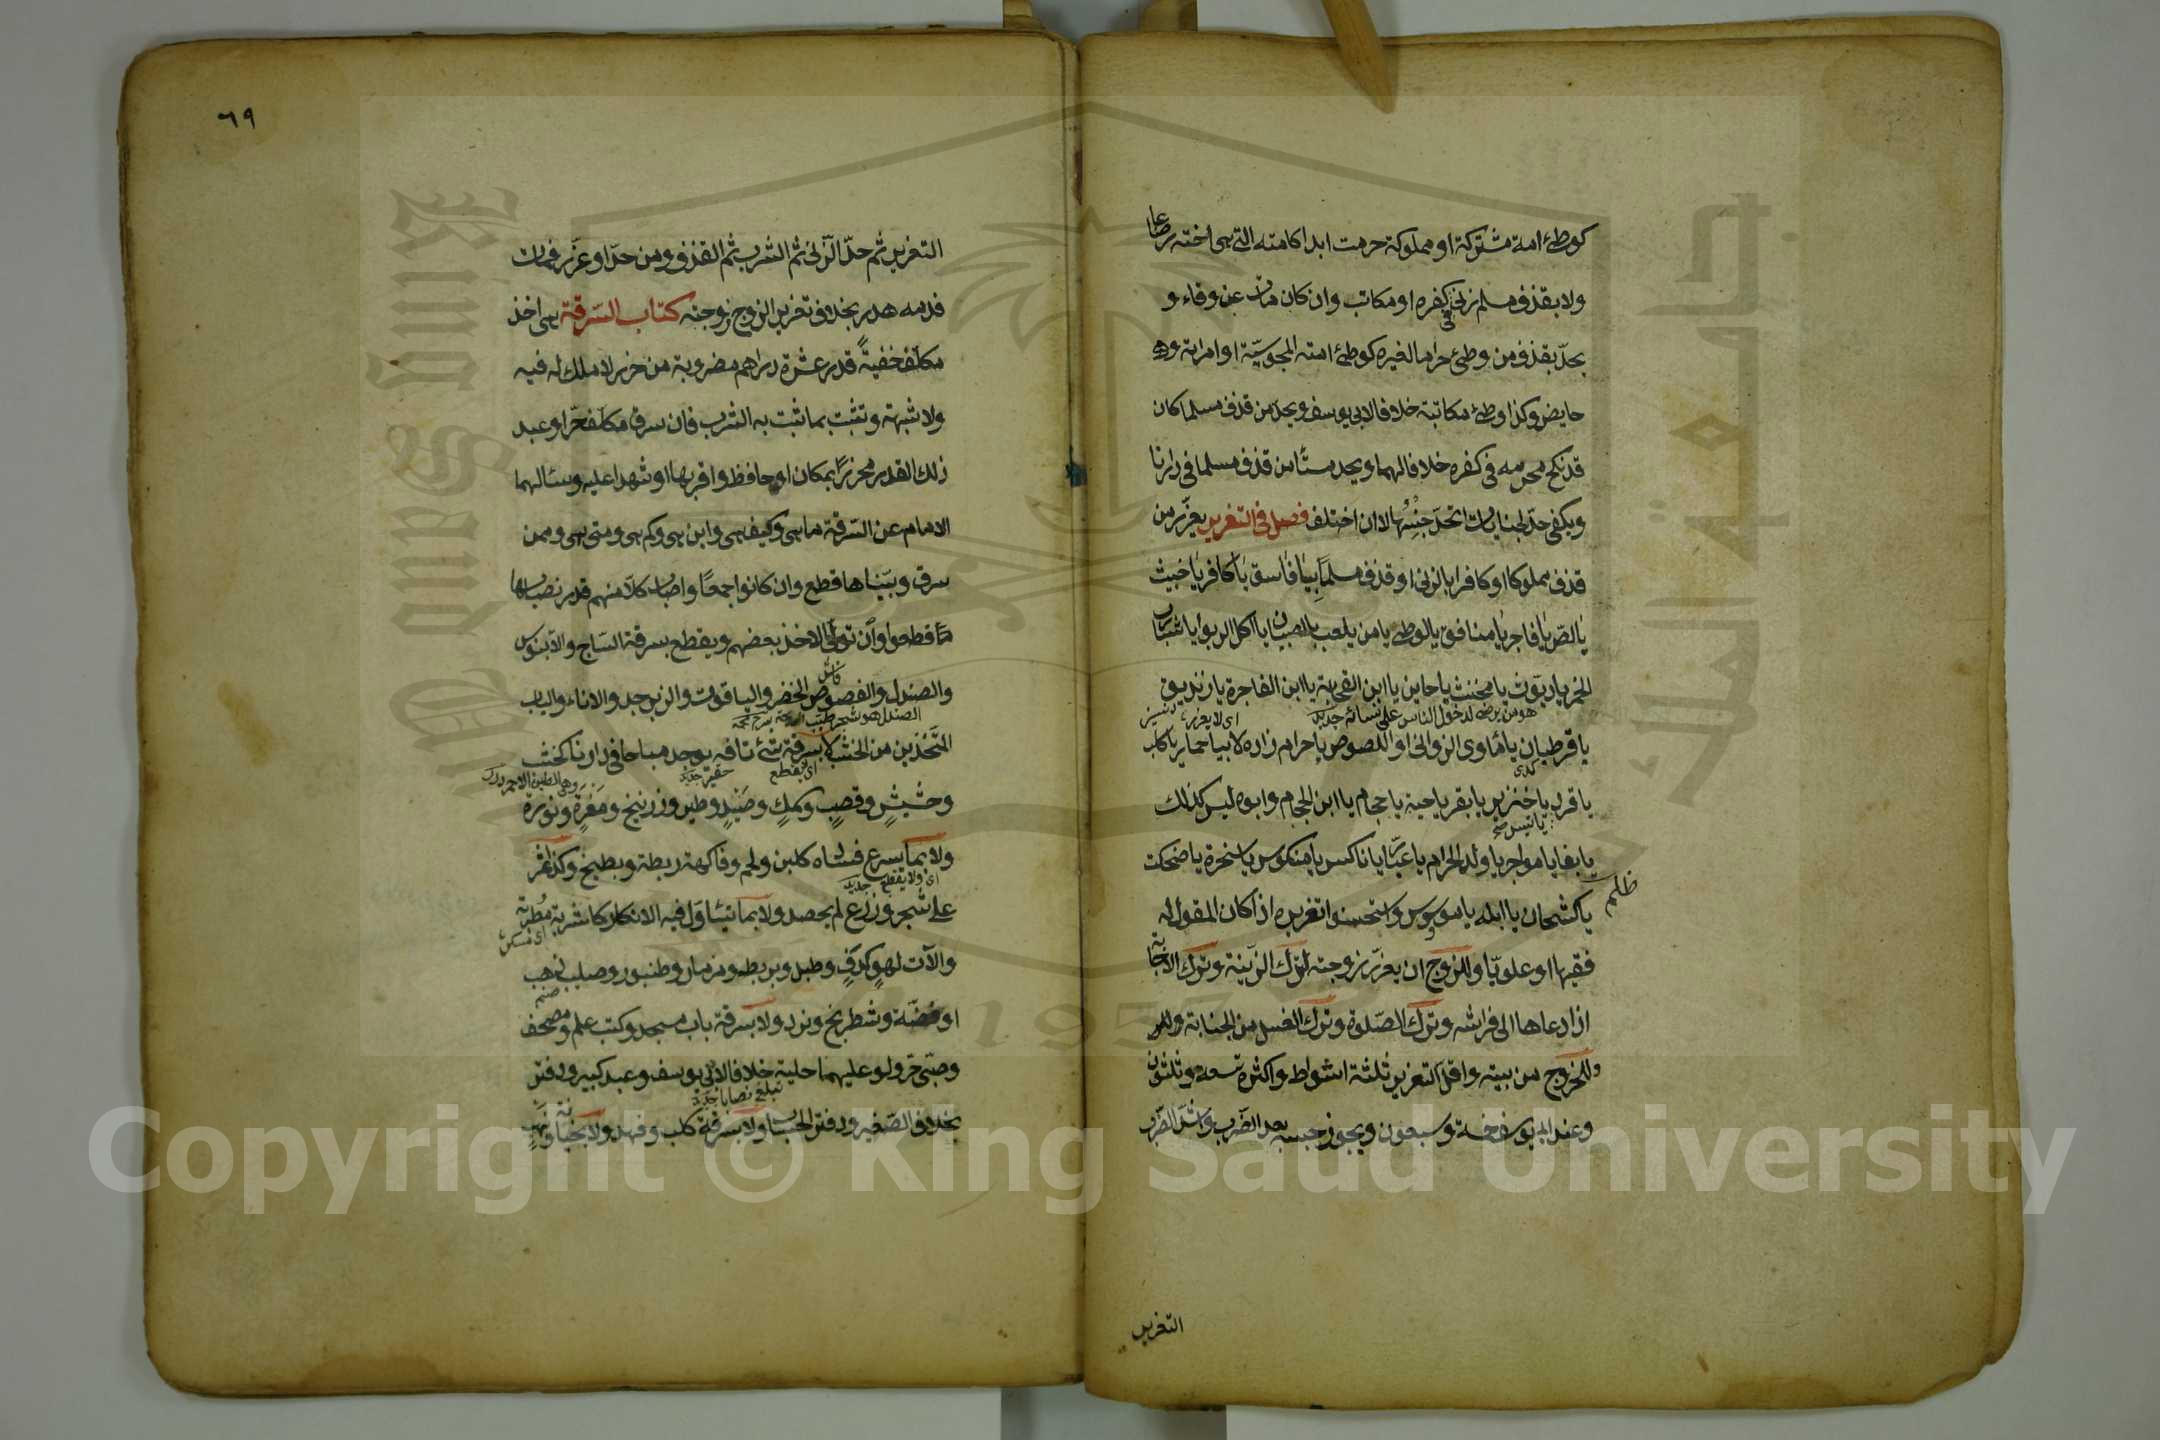 كوطئ امة مشتركة او مملوكة حرمت ابدا كامته التي هي اخته رضاعا
ولا بقذف مسلم زنى في كفره او مكاتب وان كان مات عن وفاء و
يحدّ بقذف من وطئ حراما لغيره كوطئ امته المجوسيّة او امراته وهي
حايض وكذا وطئ مكاتبته خلافا لابي يوسف ويحد من قذف مسلما كان
قد نكح محرمه في كفره خلافا لهما ويحد مستأمن قذف مسلما في دارنا
ويكفي حدّ لجنايات اتحد جنسها لا ان اختلف فصل في التعزير يعزّر من
قذف مملوكا او كافرا بالزنى او قذف مسلما بيا فاسق يا كافر يا خبيث
يا لصّ يا فاجر يا منافق يا لوطي يا من يلعب بالصبيان يا آكل الربوا يا شارب
الخمر يا ديّوث يا مخنث يا خاين يا ابن القحبة يا ابن الفاجرة يا زنديق
هو من يرضى لدخول الناس على نسائه جديد
اى لا يعزر
يا قرطبان يا مأوى الزواني او اللصوص يا حرام زاده لا بيا حمار يا كلب
يا قرد يا خنزير يا بقر يا حية يا حجام يا ابن الحجام وابوه ليس كذلك
يا تيس صح
يا بغا يا مواجر يا ولد الحرام يا عيّار يا ناكس يا منكوس يا سخرة يا ضحكة
يا كشحان يا ابله يا موسوس واستحسنوا تعزيره اذا كان المقول له
فقيها او علويّا وللزوج ان يعزّر زوجته لترك الزينة وترك الاجابة
اذا دعاها الى فراشه وترك الصّلوة وترك الغسل من الجنابة
وللخروج من بيته واقل التعزير ثلثة اسواط واكثره تسعة وثلثون
وعند ابي يوسف خمسة وسبعون ويجوز حبسه بعد الضّرب واشدّ الضّرب
التعزير
٦٩
التعزير ثم حدّ الزنى ثم الشرب ثم القذف ومن حدّ او عزّر فمات
فدمه هدر بخلاف تعزير الزوج زوجته كتاب السّرقة هي اخذ
مكلّف خفيةً قدر عشرة دراهم مضروبة من حرز لا ملك له فيه
ولا شبهة وتثبت بما ثبت به الشرب فان سرق مكلّف حرّ او عبد
ذلك القدر محرزا بمكان او حافظ واقر بها او شهدا عليه وسئالهما
الامام عن السّرقة ما هي وكيف هي واين هي وكم هي ومتى هي وممن
سرق وبيّناها قطع وان كانوا جمعًا واصاب كلاّ منهم قدر نصابها
قطعوا وان تولى الاخذ بعضهم ويقطع بسرقة السّاج والآبنوس
والصندل والفصوص الخضر والياقوت والزبرجد والاناء والباب
المتّخذين من الخشب لا بسرقة شئ تافه يوجد مباحا في دارنا كخشب
اى لا يقطع
حقير جديد
وهي الطين الاحمر
وحشيشٍ وقصبٍ وسمكٍ وصَيْدٍ وطير وزرنيخ ومَغْرَةٍ ونورة
ولا بما يسرع فساده كلبن ولحم وفاكهة رطبة وبطيخ وكذا ثمر
اى ولا يقطع جديد
على شجر وزرع لم يحصد ولا بما يتأول فيه الانكار كاشربة مُطْرِبة
اى مسكرة
وآلات لهوٍ كدفٍّ وطبل وبربط ومزمار وطنبور وصليب ذهب
صنم
او فضّة وشطرنج ونرد ولا بسرقة باب مسجد وكتب علم ومصحف
وصبّي حرّ ولو عليهما حلية خلافا لابي يوسف وعبد كبير ودفتر
تبلغ نصابا جديد
بخلاف الصّغير ودفتر الحساب ولا بسرقة كلب وفهد ولا بخيانة ونَهْبٍ